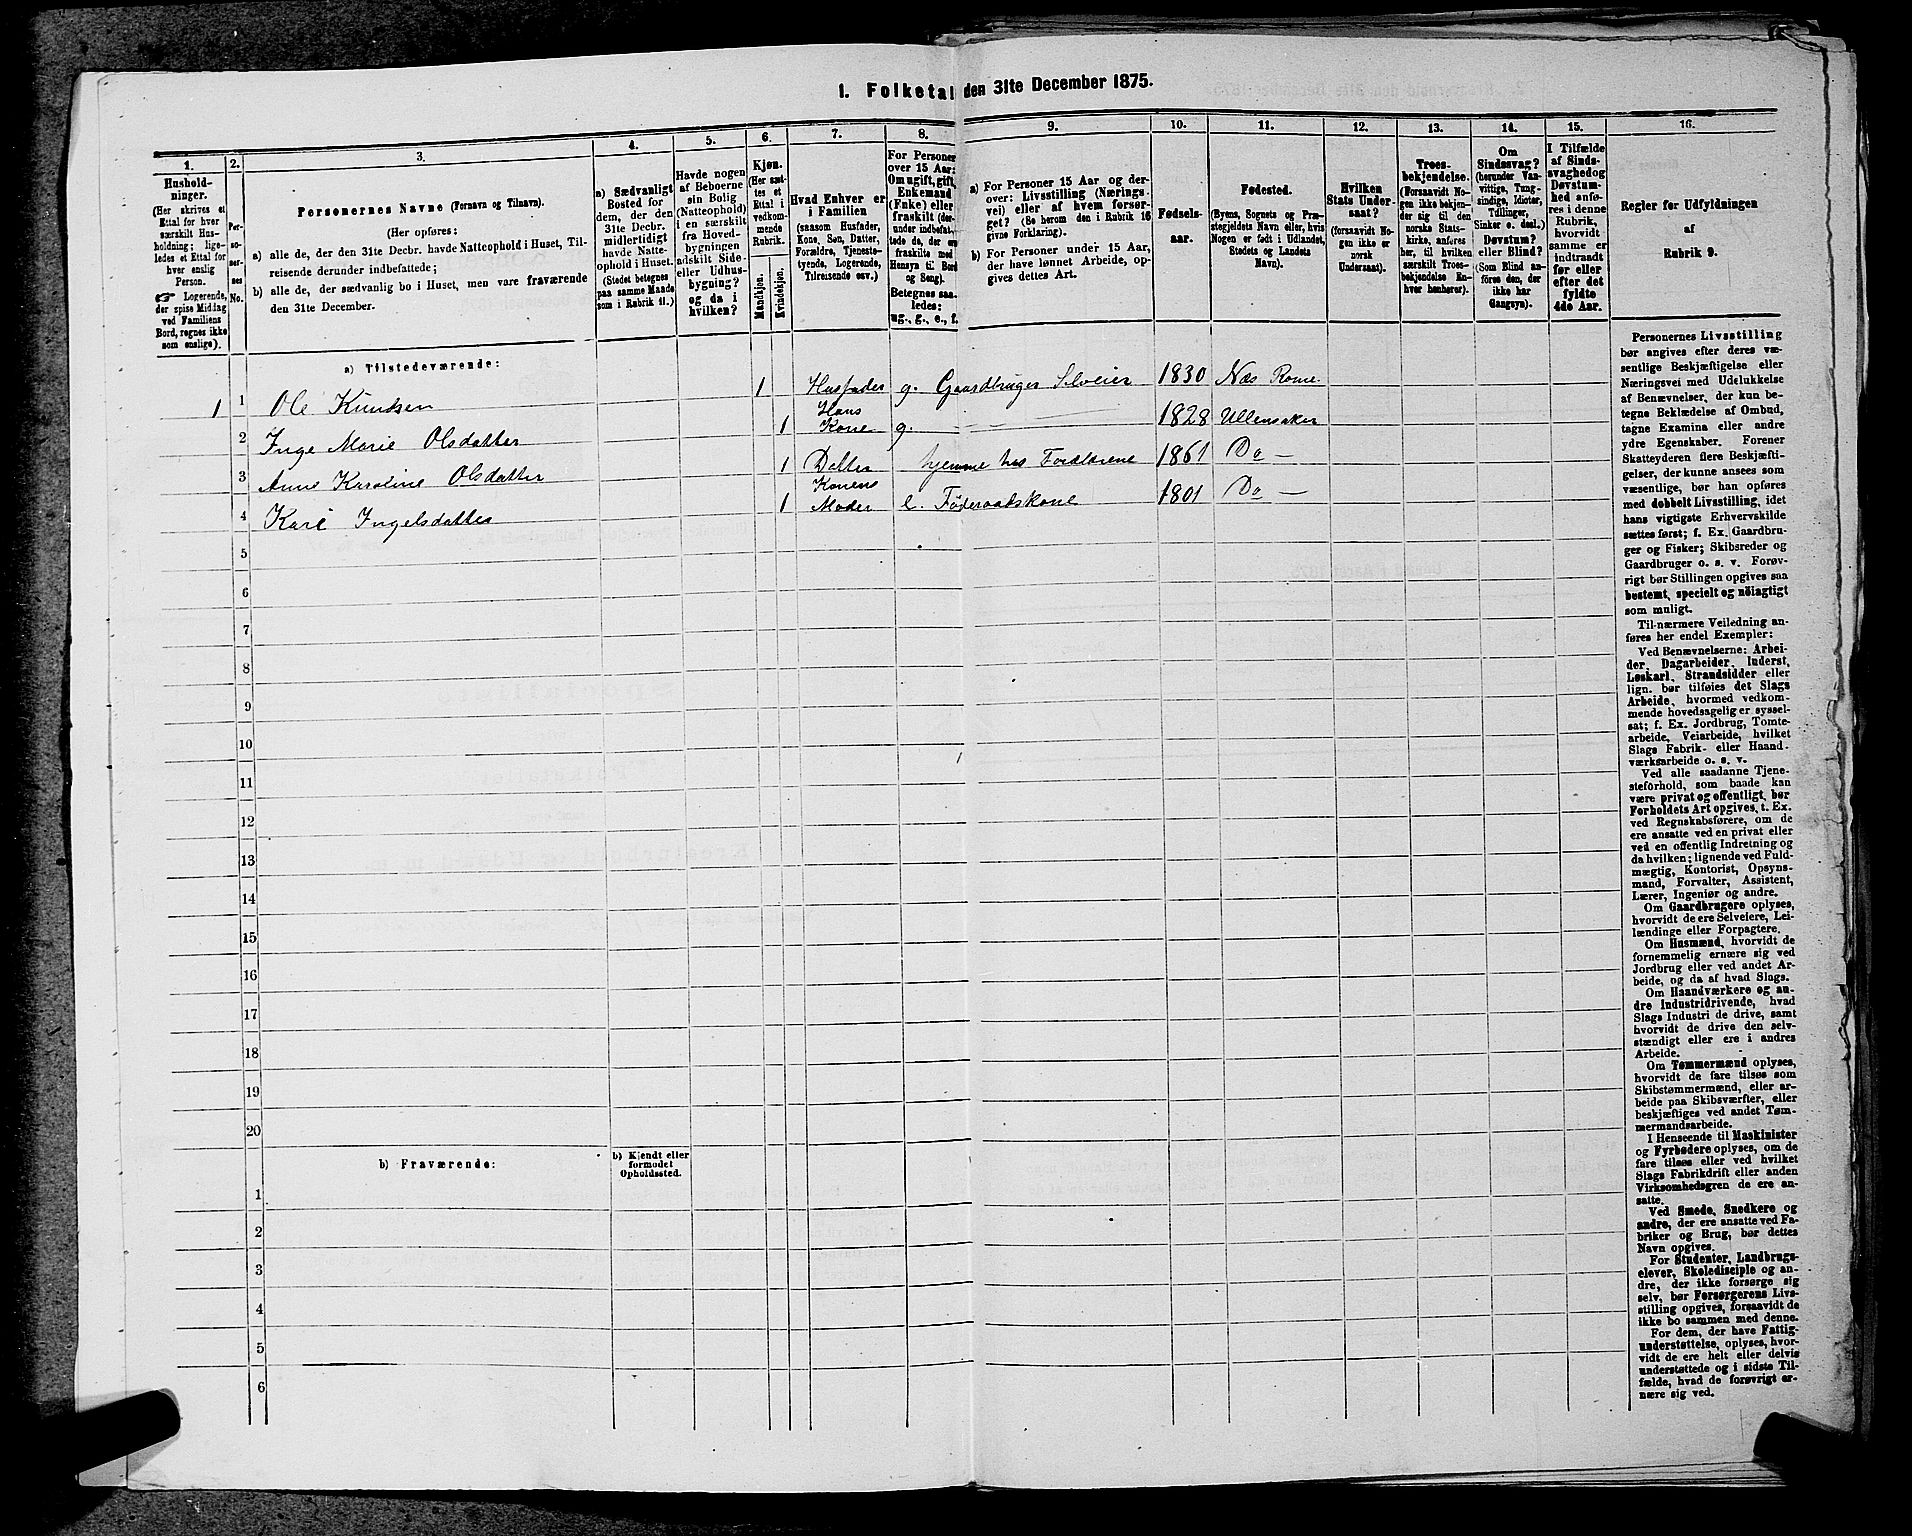 1. Folketal den 31te December 1875.
1.
Hushold-
ninger.
(Her skrives et
Ettal for hver
særskilt Hus-
holdning; lige-
ledes et Ettal for
hver enslig
Person.
☞ Logerende,
der spise Middag
ved Familiens
Bord, regnes ikke
som enslige).
2.
Per-
so-
ner-
nes
No.
3.
Personernes Navne (Fornavn og Tilnavn).
(Her opføres:
a) alle de, der den 31te Decbr. havde Natteophold i Huset, Til-
reisende derunder indbefattede;
b) alle de, der sædvanlig bo i Huset, men vare fraværende
den 31te December.
4.
a) Sædvanligt
Bosted for
dem, der den
31te Decbr.
midlertidigt
havde Natte-
ophold i Huset.
(Stedet betegnes
paa samme Maade
som i Rubrik 11.)
5.
Havde nogen
af Beboerne
sin Bolig
(Natteophold)
i en særskilt
fra Hoved-
bygningen
adskilt Side-
eller Udhus-
bygning?
og da i
hvilken?
6.
Kjøn.
(Her sæt-
tes et
Ettal i
vedkom-
mende
Rubrik.
Mandkjøn.
Kvindekjøn.
7.
Hvad Enhver er
i Familien
(saasom Husfader,
Kone, Søn, Datter,
Forældre, Tjeneste-
tyende, Logerende,
Tilreisende osv.)
8.
For Personer
over 15 Aar:
Om ugift, gift,
Enkemand
(Enke) eller
fraskilt (der-
under indbefat-
tede de, der ere
fraskilte med
Hensyn til Bord
og Seng).
Betegnes saa-
ledes:
ug., g., e., f.
9.
a) For Personer 15 Aar og der-
over: Livsstilling (Nærings-
vei) eller af hvem forsør-
get? (Se herom den i Rubrik 16
givne Forklaring).
b) For Personer under 15 Aar,
der have lønnet Arbeide, op-
gives dettes Art.
10.
Fødsels-
aar.
11.
Fødested.
(Byens, Sognets og Præ-
stegjeldets Navn eller, hvis
Nogen er født i Udlandet,
Stedets og Landets
Navn).
12.
Hvilken
Stats Under-
saat?
(forsaavidt No-
gen ikke er
norsk
Undersaat).
13.
Troes-
bekjendelse.
(Forsaavidt No-
gen ikke bekjen-
der sig til den
norske Stats-
kirke, anføres
her, til hvilken
særskilt Troes-
bekjendelse En-
hver henhører).
14.
Om
Sindssvag?
(herunder Van-
vittige, Tung-
sindige, Idioter,
Tullinger,
Sinker o. desl.)
Døvstum?
eller Blind?
(Som Blind an-
føres den, der
ikke har
Gangsyn).
15.
I Tilfælde
af Sinds-
svaghed og
Døvstum-
hed anfø-
res i denne
Rubrik,
hvorvidt
samme er
indtraadt
før eller
efter det
fyldte
4de Aar.
16.
Regler for Udfyldningen
af
Rubrik 9.
a) Tilstedeværende:
1 1 Ole Knudsen 1 Husfader g. Gaardbruger Selveier 1830 Næs Rome.
2 Inge Marie Olsdatter 1 Hans Kone g. — 1828 Ullensaker
3 Anne Karoline Olsdatter 1 Datter hjemme hos Forældrene 1861 Do —
4 Kari Ingelsdatter 1 Konens Moder e. Føderaadskone 1801 Do —
5
6
7
8
9
10
11
12
13
14
15
16
17
18
19
20
b) Fraværende:
b) Kjendt eller
formodet
Opholdssted.
1
2
3
4
5
6
Personernes Livsstilling
bør angives efter deres væ-
sentlige Beskjæftigelse eller
Næringsvei med Udelukkelse
af Benævnelser, der kun be-
tegne Beklædelse af Ombud,
tagne Examina eller andre
ydre Egenskaber. Forener
Skatteyderen flere Beskjæfti-
gelser, der kunne ansees som
væsentlige, bør han opføres
med dobbelt Livsstilling, idet
hans vigtigste Erhvervskilde
sættes først; f. Ex. Gaardbru-
ger og Fisker; Skibsreder og
Gaardbruger o. s. v. Forøv-
rigt bør Stillingen opgives saa
bestemt, specielt og nöiagtigt
som muligt.
Til nærmere Veiledning an-
føres her endel Exempler:
Ved Benævnelserne: Arbei-
der, Dagarbeider, Inderst,
Løskarl, Strandsidder eller
lign. bør tilføies det Slags
Arbeide, hvormed vedkom-
mende hovedsagelig er syssel-
sat; f. Ex. Jordbrug, Tomte-
arbeide, Veiarbeide, hvilket
Slags Fabrik- eller Haand-
værksarbeide o. s. v.
Ved alle saadanne Tjene-
steforhold, som baade kan
være privat og offentligt, bør
Forholdets Art opgives, t. Ex.
ved Regnskabsførere, om de
ere ansatte ved en privat eller
ved en offentlig Indretning og
da hvilken; lignende ved Fuld-
mægtig, Kontorist, Opsyns-
mand, Forvalter, Assistent,
Lærer, Ingeniør og andre.
Om Gaardbrugere oplyses,
hvorvidt de ere Selveiere, Lei-
lændinge eller Forpagtere.
Om Husmænd, hvorvidt de
fornemmelig ernære sig ved
Jordbrug eller ved andet Ar-
beide, og da af hvad Slags.
Om Haandværkere og an-
dre Industridrivende, hvad
Slags Industri de drive, samt
hvorvidt de drive den selv-
stændigt eller ere i andres
Arbeide.
Om Tømmermænd oplyses,
hvorvidt de fare tilsøs som
Skibstømmermænd, eller ar-
beide paa Skibsværfter, eller
beskjæftiges ved andet Tøm-
mermandsarbeide.
I Henseende til Maskinister
og Fyrbødere oplyses, om de
fare tilsøs eller ved hvilket
Slags Fabrikdrift eller anden
Virksomhedsgren de ere an-
satte.
Ved Smede, Snedkere og
andre, der ere ansatte ved Fa-
briker og Brug, bør dettes
Navn opgives.
For Studenter, Landbrugs-
elever, Skoledisciple og an-
dre, der ikke forsørge sig
selv, bør Forsørgerens Livs-
stilling opgives, forsaavidt de
ikke bo sammen med denne.
For dem, der have Fattig-
understøttelse, oplyses, hvor-
vidt de ere helt eller delvis
understøttede og i sidste Til-
fælde, hvad de forøvrigt er-
nære sig ved.